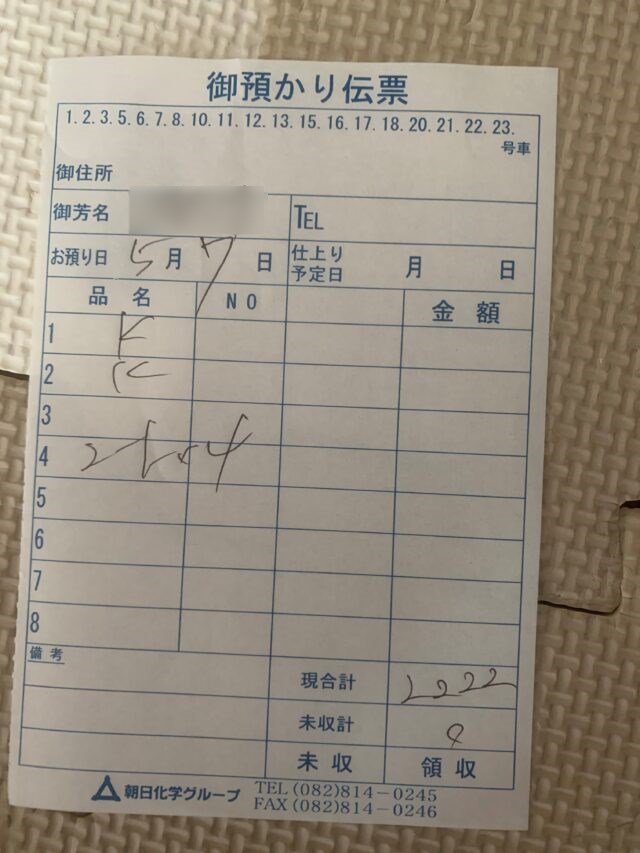 御預かり伝票
1. 2. 3. 5. 6. 7. 8. 10. 11. 12. 13. 15. 16. 17. 18. 20. 21. 22. 23.
号車
御住所
御芳名 TEL
お預り日 5月 7日 仕上り予定日 月 日
品名 NO 金額
1 K
2 K
3
4
5
6
7
8
備考
現合計 2022
未収計 0
未収 領収
朝日化学グループ TEL (082)814-0245
FAX (082)814-0246